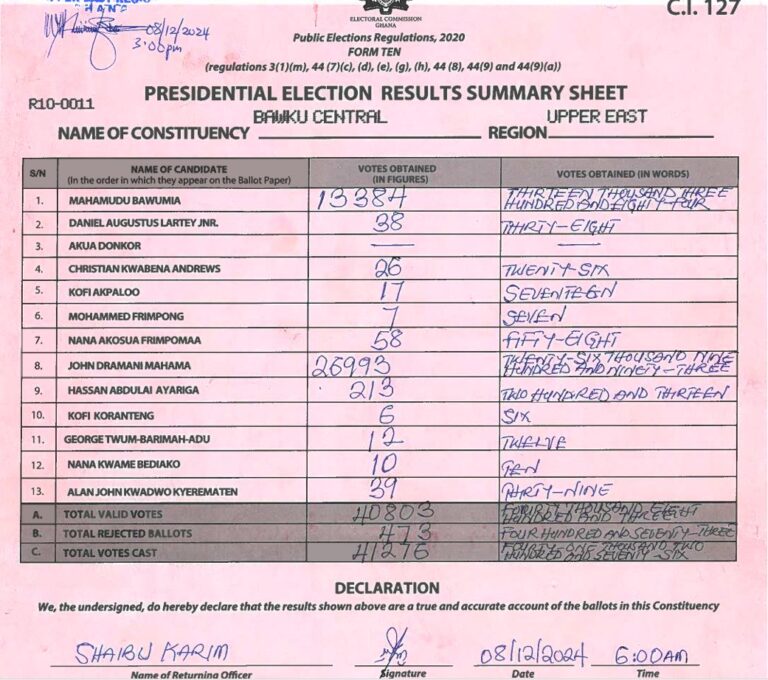 C.I. 127
08/12/2024
3:00pm
ELECTORAL COMMISSION
GHANA
Public Elections Regulations, 2020
FORM TEN
(regulations 3(1)(m), 44 (7)(c), (d), (e), (g), (h), 44 (8), 44(9) and 44(9)(a))
R10-0011
PRESIDENTIAL ELECTION RESULTS SUMMARY SHEET
NAME OF CONSTITUENCY BAWKU CENTRAL REGION UPPER EAST
S/N NAME OF CANDIDATE (In the order in which they appear on the Ballot Paper) VOTES OBTAINED (IN FIGURES) VOTES OBTAINED (IN WORDS)
1. MAHAMUDU BAWUMIA 13384 THIRTEEN THOUSAND THREE HUNDRED AND EIGHTY-FOUR
2. DANIEL AUGUSTUS LARTEY JNR. 38 THIRTY-EIGHT
3. AKUA DONKOR — —
4. CHRISTIAN KWABENA ANDREWS 26 TWENTY-SIX
5. KOFI AKPALOO 17 SEVENTEEN
6. MOHAMMED FRIMPONG 7 SEVEN
7. NANA AKOSUA FRIMPOMAA 58 FIFTY-EIGHT
8. JOHN DRAMANI MAHAMA 26993 TWENTY-SIX THOUSAND NINE HUNDRED AND NINETY-THREE
9. HASSAN ABDULAI AYARIGA 213 TWO HUNDRED AND THIRTEEN
10. KOFI KORANTENG 6 SIX
11. GEORGE TWUM-BARIMAH-ADU 12 TWELVE
12. NANA KWAME BEDIAKO 10 TEN
13. ALAN JOHN KWADWO KYEREMATEN 39 THIRTY-NINE
A. TOTAL VALID VOTES 40803 THOUSAND EIGHT HUNDRED AND
B. TOTAL REJECTED BALLOTS 473 FOUR HUNDRED AND SEVENTY-THREE
C. TOTAL VOTES CAST 41276 ONE THOUSAND TWO HUNDRED AND SEVENTY-SIX
DECLARATION
We, the undersigned, do hereby declare that the results shown above are a true and accurate account of the ballots in this Constituency
SHAIBU KARIM 08/12/2024 6:00AM
Name of Returning Officer Signature Date Time